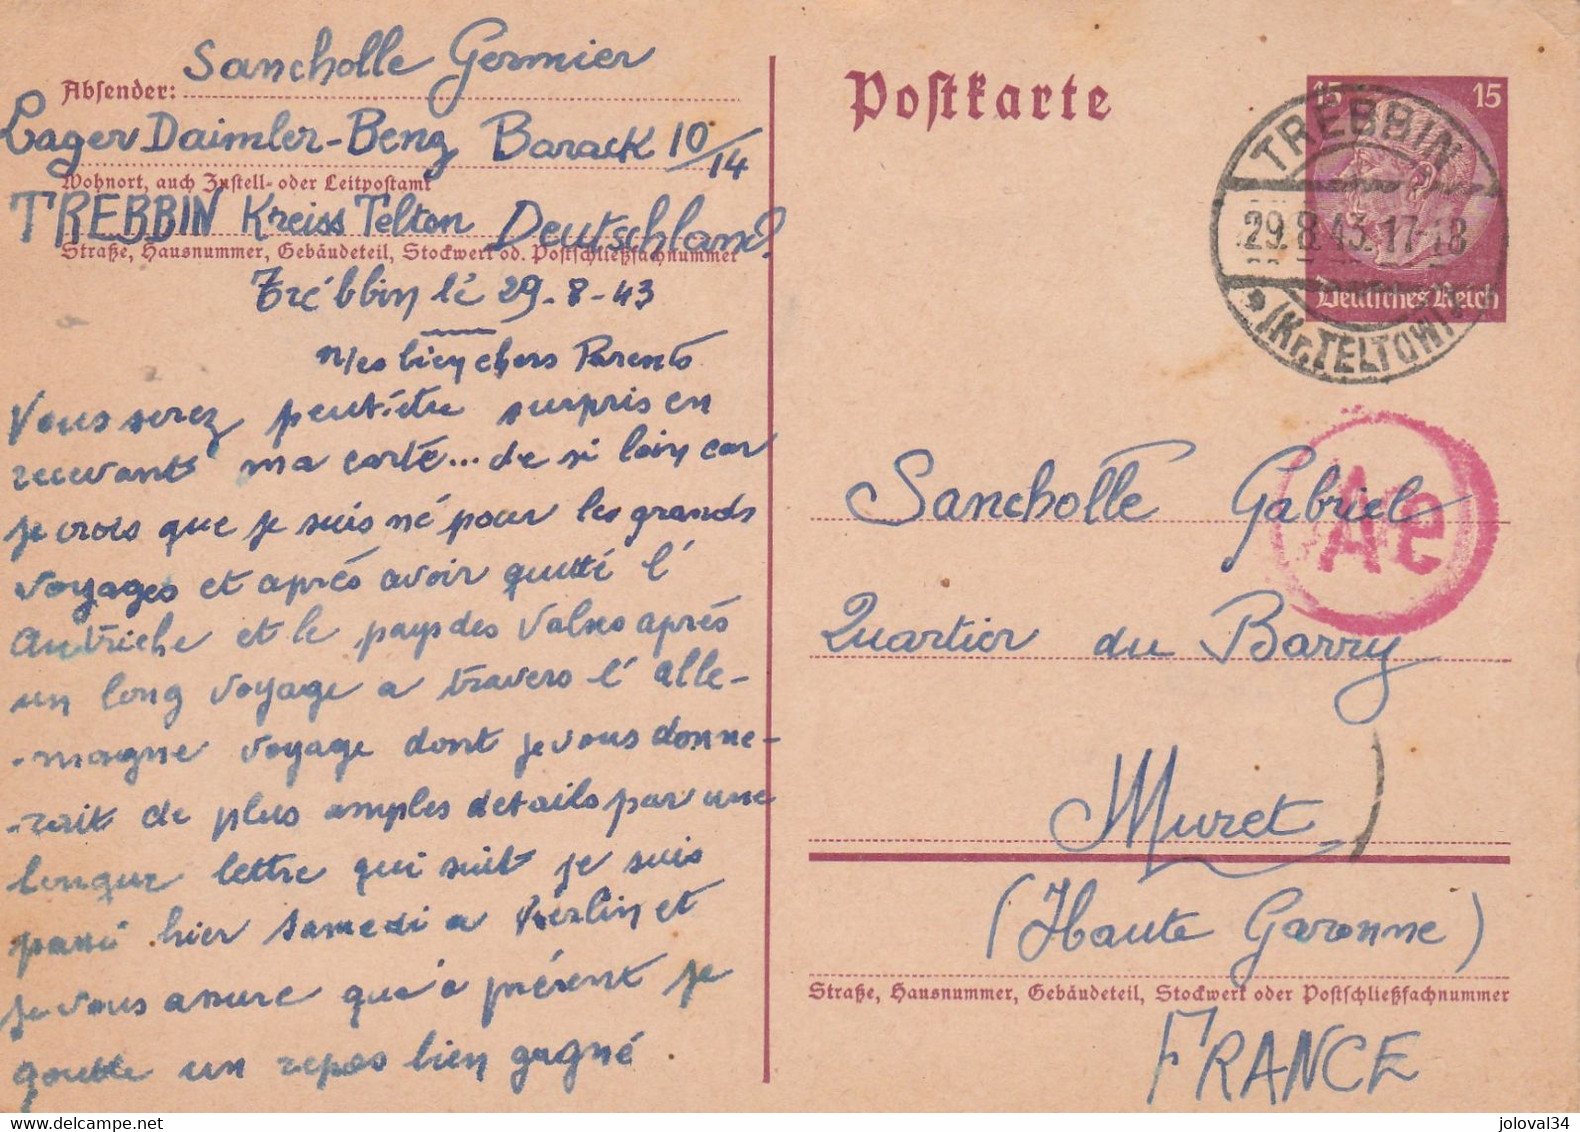 Sancholle Germier
Absender:
Lager Daimler-Benz Barack 10/14
Wohnort, auch Zustell- oder Leitpostamt
TREBBIN Kreiss Telton Deutschland
Straße, Hausnummer, Gebäudeteil, Stockwerk od. Postschließfachnummer
Trébbin le 29-8-43
Mes bien chers Parents
Vous serez peut-être surpris en
recevant ma carte... de si loin car
je crois que je suis né pour les grands
voyages et après avoir quitté l'
Autriche et le pays des Valses après
un long voyage a travers l'alle-
-magne voyage dont je vous donne-
-rait de plus amples details par une
longue lettre qui suit je suis
passé hier samedi a Berlin et
je vous assure qu'à présent je
goutte un repos bien gagné.
Postkarte
15 15
Deutsches Reich
TREBBIN
29.8.43.17-18
(Kr. TELTOW)
Ae
Sancholle Gabriel
Quartier du Barry
Muret
(Haute Garonne)
Straße, Hausnummer, Gebäudeteil, Stockwerk oder Postschließfachnummer
FRANCE
www.delcampe.net
joloval34